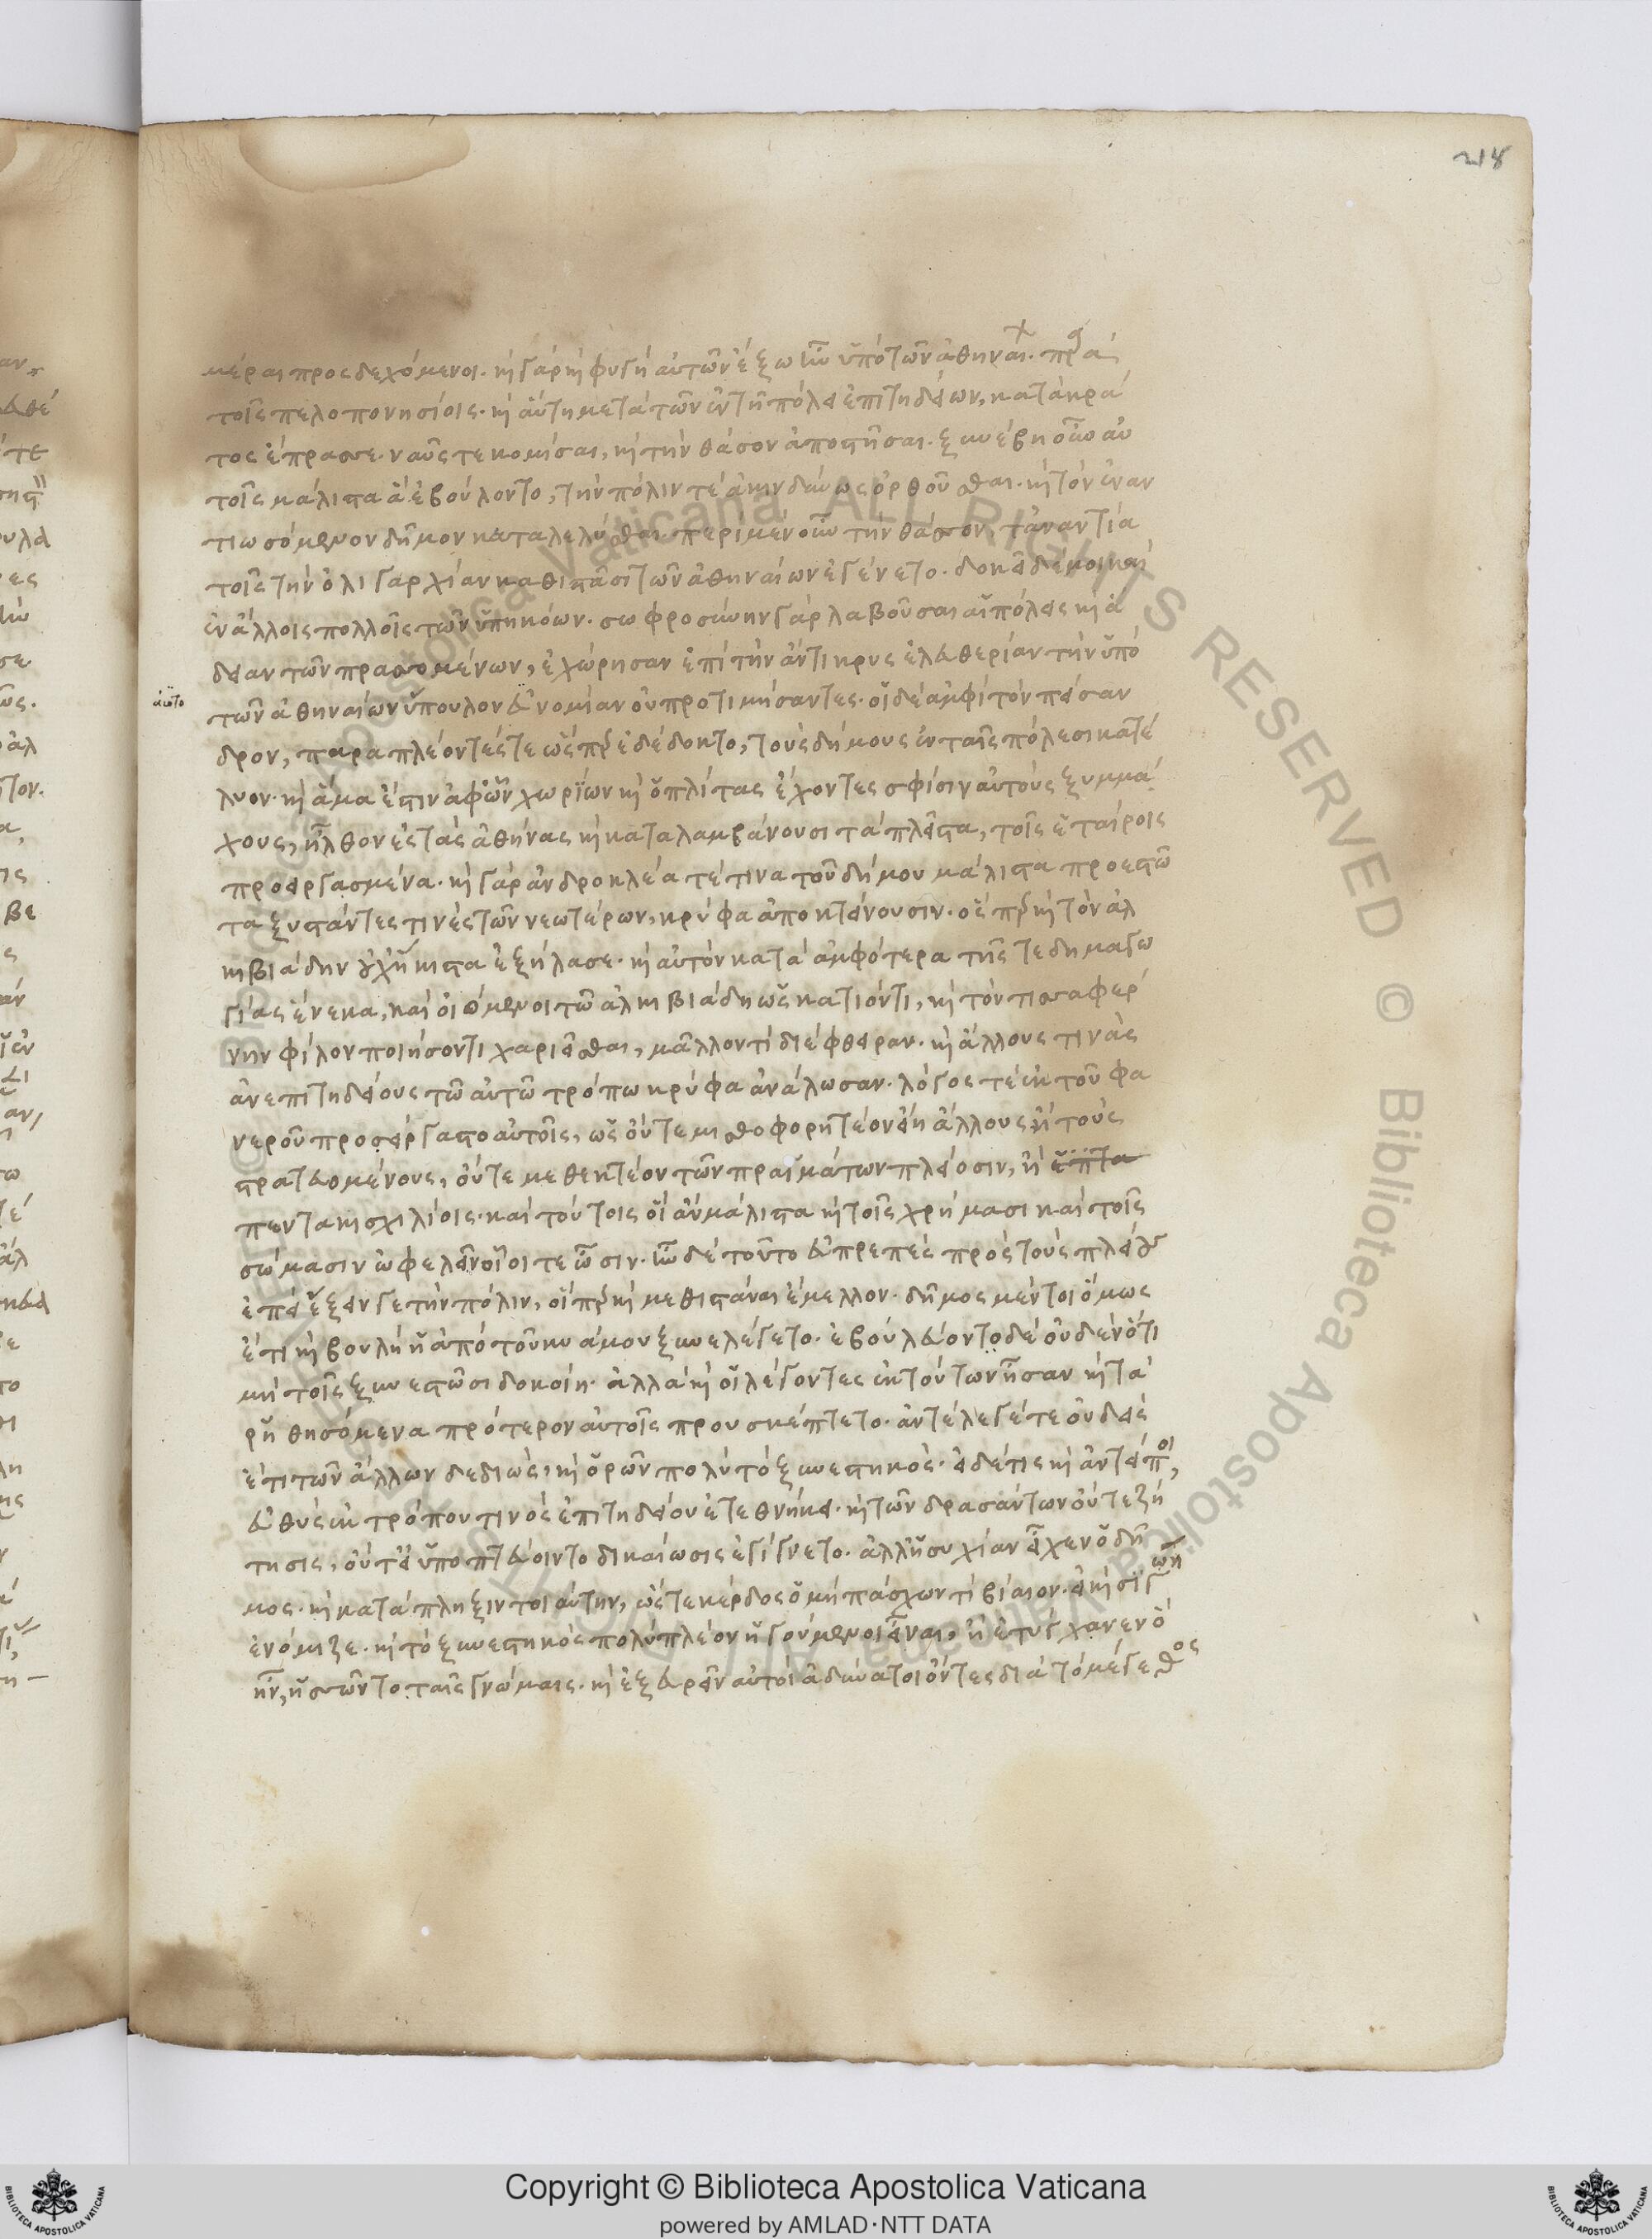 218
μέραι προσδεχόμενοι. κ(αὶ) γὰρ κ(αὶ) φυγὴ αὐτῶν ἔξω ἦν ὑπὸ τῶν ἀθηναι. πρὰ
τοῖς πελοπονησίοις. κ(αὶ) αὕτη μετὰ τῶν ἐν τῇ πόλει ἐπιτηδείων, κατὰ κρά
τος ἔπρασσε. ναῦς τε κομίσαι, κ(αὶ) τὴν θάσον ἀποστῆσαι. ξυνέβη οὖν αὐ
τοῖς μάλιστα ἃ ἐβούλοντο, τὴν πόλιν τὲ ἀκινδύνως ὀρθοῦσθαι. κ(αὶ) τὸν ἐναν
τιωσόμενον δῆμον καταλελύσθαι. περὶ μὲν οὖν τὴν θάσον, τἀναντία
τοῖς τὴν ὀλιγαρχίαν καθιστᾶσι τῶν ἀθηναίων ἐγένετο. δοκεῖ δέ μοι καὶ
ἐν ἄλλοις πολλοῖς τῶν ὑπηκόων. σωφροσύνην γὰρ λαβοῦσαι αἱ πόλεις κ(αὶ) ἄ
δειαν τῶν πρασσομένων, ἐχώρησαν ἐπὶ τὴν ἄντικρυς ἐλευθερίαν τὴν ὑπὸ
τῶν ἀθηναίων ὕπουλον εὐνομίαν οὐ προτιμήσαντες. οἱ δὲ ἀμφὶ τὸν πείσαν
δρον, παραπλέοντές τε ὥσπερ ἐδέδοκτο, τοὺς δήμους ἐν ταῖς πόλεσι κατέ
λυον. κ(αὶ) ἅμα ἔστιν ἀφ' ὧν χωρίων κ(αὶ) ὁπλίτας ἔχοντες σφίσιν αὐτοὺς ξυμμά
χους, ἦλθον ἐς τὰς ἀθήνας κ(αὶ) καταλαμβάνουσι τὰ πλεῖστα, τοῖς ἑταίροις
προειργασμένα. κ(αὶ) γὰρ ἀνδροκλέα τέ τινα τοῦ δήμου μάλιστα προεστῶ
τα ξυστάντες τινὲς τῶν νεωτέρων, κρύφα ἀποκτείνουσιν. ὅσπερ κ(αὶ) τὸν ἀλ
κιβιάδην οὐχ ἥκιστα ἐξήλασε. κ(αὶ) αὐτὸν κατὰ ἀμφότερα τῆς τε δημαγω
γίας ἕνεκα, καὶ οἰόμενοι τῷ ἀλκιβιάδη ὡς κατιόντι, κ(αὶ) τὸν τισσαφέρ
νην φίλον ποιήσοντι χαριεῖσθαι, μᾶλλον τὶ διέφθειραν. κ(αὶ) ἄλλους τινὰς
ἀνεπιτηδείους τῷ αὐτῷ τρόπω κρύφα ἀνάλωσαν. λόγος τὲ ἐκ τοῦ φα
νεροῦ προσείργαστο αὐτοῖς, ὡς οὔτε μισθοφορητέον εἴη ἄλλους ἢ τοὺς
στρατευομένους, οὔτε μεθεκτέον τῶν πραγμάτων πλείοσιν, ἢ ἑπτα
πεντακισχιλίοις. καὶ τούτοις οἳ ἂν μάλιστα κ(αὶ) τοῖς χρήμασι καὶ τοῖς
σώμασιν ὠφελεῖν οἷοι τε ὦσιν. ἦν δὲ τοῦτο εὐπρεπὲς πρὸς τοὺς πλείους
ἐπεὶ ἕξειν γε τὴν πόλιν, οἵπερ κ(αὶ) μεθιστάναι ἔμελλον. δῆμος μέντοι ὅμως
ἔτι κ(αὶ) βουλὴ ἡ ἀπὸ τοῦ κυάμου ξυνελέγετο. ἐβούλευον το δὲ οὐδὲν ὅτι
μὴ τοῖς ξυνεστῶσι δοκοίη. ἀλλὰ κ(αὶ) οἱ λέγοντες ἐκ τούτων ἦσαν κ(αὶ) τὰ
ῥηθησόμενα πρότερον αὐτοῖς προυσκέπτετο. ἀντέλεγέ τε οὐδεὶς
ἔτι τῶν ἄλλων δεδιὼς, κ(αὶ) ὁρῶν πολὺ τὸ ξυνεστηκός. εἰ δέ τις κ(αὶ) ἀντείποι,
εὐθὺς ἐκ τρόπου τινὸς ἐπιτηδείου ἐτεθνήκει. κ(αὶ) τῶν δρασάντων οὔτε ζή
τησις, οὔτ' εἰ ὑποπτεύοιντο δικαίωσις ἐγίγνετο. ἀλλ' ἡσυχίαν εἶχεν ὁ δῆ
μος. κ(αὶ) κατάπληξιν τοιαύτην, ὥστε κέρδος ὁ μὴ πάσχων τὶ βίαιον. εἰ κ(αὶ) σιγῴη
ἐνόμιζε. κ(αὶ) τὸ ξυνεστηκὸς πολὺ πλέον ἡγούμενοι εἶναι, ἢ ἐτύγχανεν ὂ
ἦν, ἡσσῶντο ταῖς γνώμαις. κ(αὶ) ἐξευρεῖν αὐτοὶ ἀδύνατοι ὄντες διὰ τὸ μέγεθος
Copyright © Biblioteca Apostolica Vaticana
powered by AMLAD·NTT DATA
BIBLIOTECA APOSTOLICA VATICANA
BIBLIOTECA APOSTOLICA VATICANA